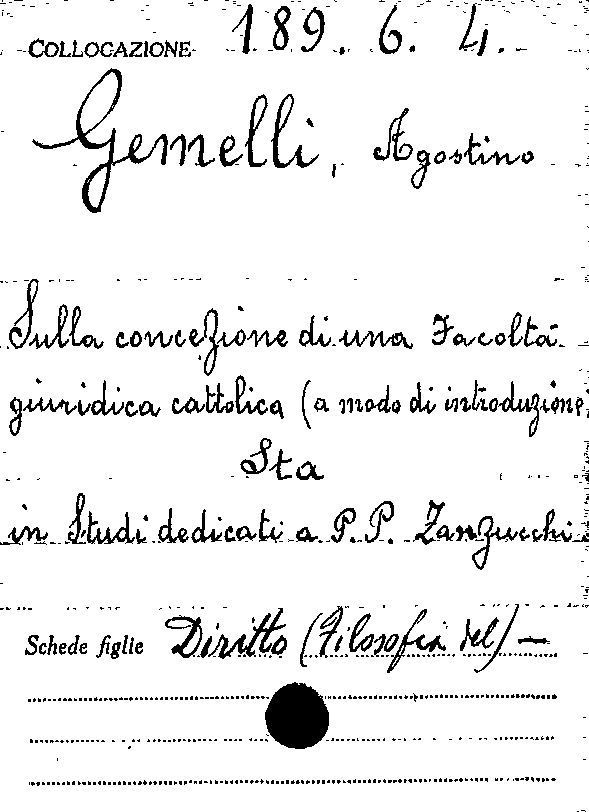 COLLOCAZIONE 189. 6. 4.
Gemelli, Agostino
Sulla concezione di una Facoltà
giuridica cattolica (a modo di introduzione
Sta
in Studi dedicati a P. P. Zanzucchi.
Schede figlie Diritto (Filosofia del) —